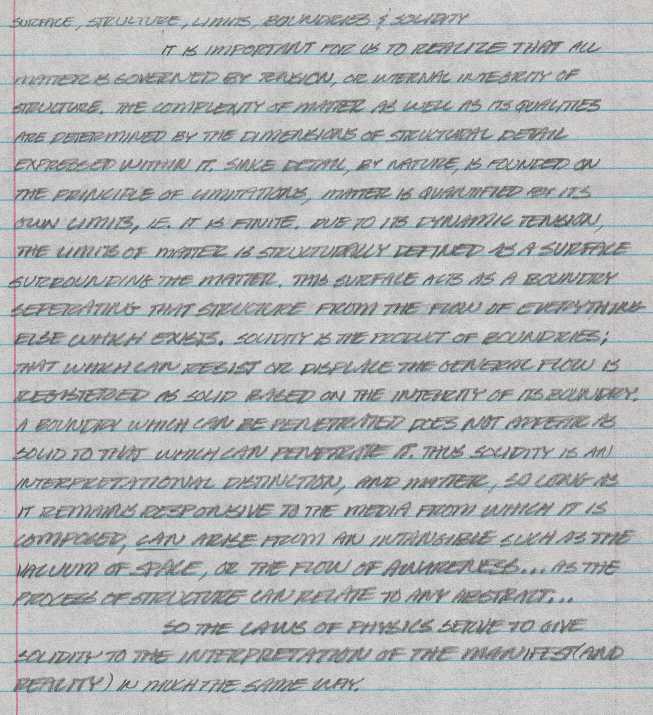 SURFACE, STRUCTURE, LIMITS, BOUNDRIES & SOLIDITY
IT IS IMPORTANT FOR US TO REALIZE THAT ALL
MATTER IS GOVERNED BY TENSION, OR INTERNAL INTEGRITY OF
STRUCTURE. THE COMPLEXITY OF MATTER AS WELL AS ITS QUALITIES
ARE DETERMINED BY THE DIMENSIONS OF STRUCTURAL DETAIL
EXPRESSED WITHIN IT. SINCE DETAIL, BY NATURE, IS FOUNDED ON
THE PRINCIPLE OF LIMITATIONS, MATTER IS QUANTIFIED BY ITS
OWN LIMITS, I.E. IT IS FINITE. DUE TO ITS DYNAMIC TENSION,
THE LIMITS OF MATTER IS STRUCTURALLY DEFINED AS A SURFACE
SURROUNDING THE MATTER. THIS SURFACE ACTS AS A BOUNDRY
SEPERATING THAT STRUCTURE FROM THE FLOW OF EVERYTHING
ELSE WHICH EXISTS. SOLIDITY IS THE PRODUCT OF BOUNDRIES;
THAT WHICH CAN RESIST OR DISPLACE THE GENERAL FLOW IS
REGISTERED AS SOLID BASED ON THE INTEGRITY OF ITS BOUNDRY.
A BOUNDRY WHICH CAN BE PENETRATED DOES NOT APPEAR AS
SOLID TO THAT WHICH CAN PENETRATE IT. THUS SOLIDITY IS AN
INTERPRETATIONAL DISTINCTION, AND MATTER, SO LONG AS
IT REMAINS RESPONSIVE TO THE MEDIA FROM WHICH IT IS
COMPOSED, CAN ARISE FROM AN INTANGIBLE SUCH AS THE
VACUUM OF SPACE, OR THE FLOW OF AWARENESS... AS THE
PROCESS OF STRUCTURE CAN RELATE TO ANY ABSTRACT...
SO THE LAWS OF PHYSICS SERVE TO GIVE
SOLIDITY TO THE INTERPRETATION OF THE MANIFEST (AND
REALITY) IN MUCH THE SAME WAY.